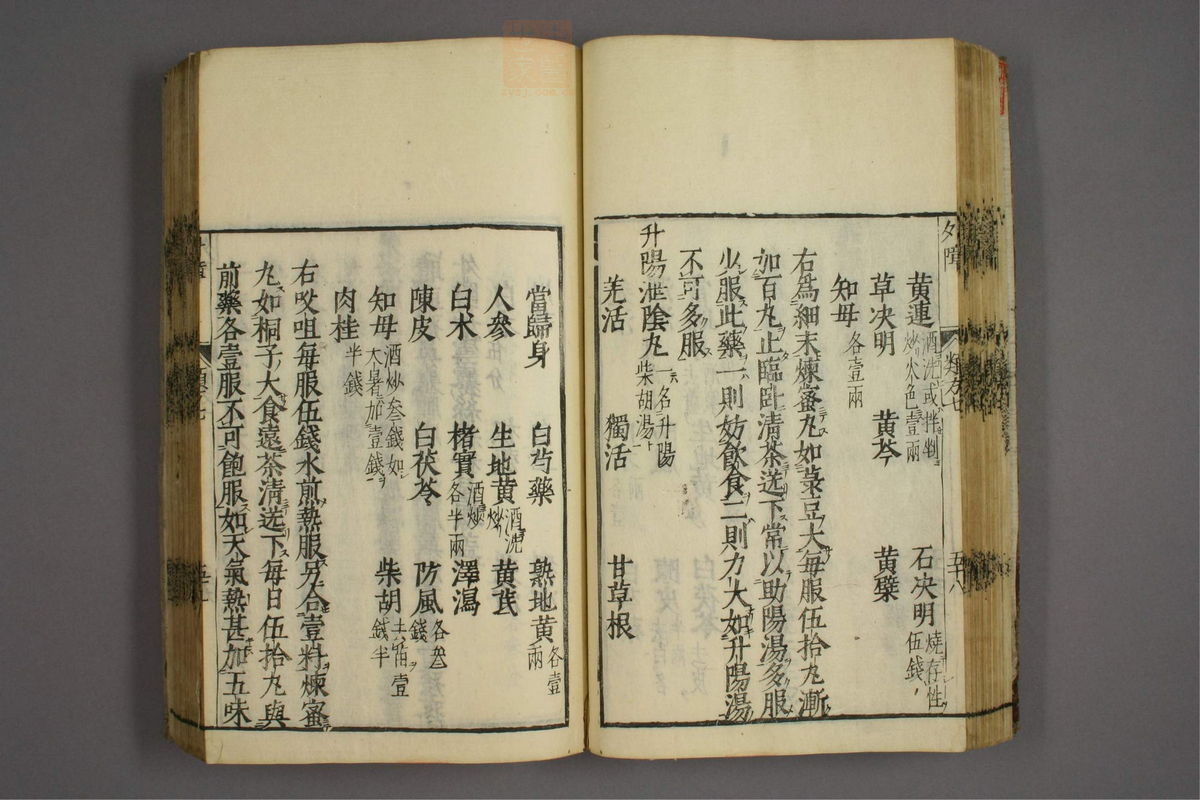 黄連酒洗或拌剉炒火色壹兩 石决明燒存性伍錢
草决明 黄芩 黄蘗
知母各壹兩
右爲細末煉蜜丸如菉豆大每服伍拾丸漸
如百丸止臨卧清茶送下常以助陽湯多服
少服此藥一則妨飲食二則力大如升陽湯
不可多服
升陽泄陰丸一名升陽柴胡湯
羌活 獨活 甘草根
當歸身 白芍藥 熟地黄各壹兩
人參 生地黄酒洗炒 黄芪
白朮 楮實酒炒各半兩 澤瀉
陳皮 白茯苓 防風各叁錢
知母酒炒叁錢如大暑加壹錢 柴胡去苗壹錢半
肉桂半錢
右㕮咀每服伍錢水煎熱服另合壹料煉蜜
丸如桐子大食遠茶清送下每日伍拾丸與
前藥各壹服不可飽服如天氣熱甚加五味